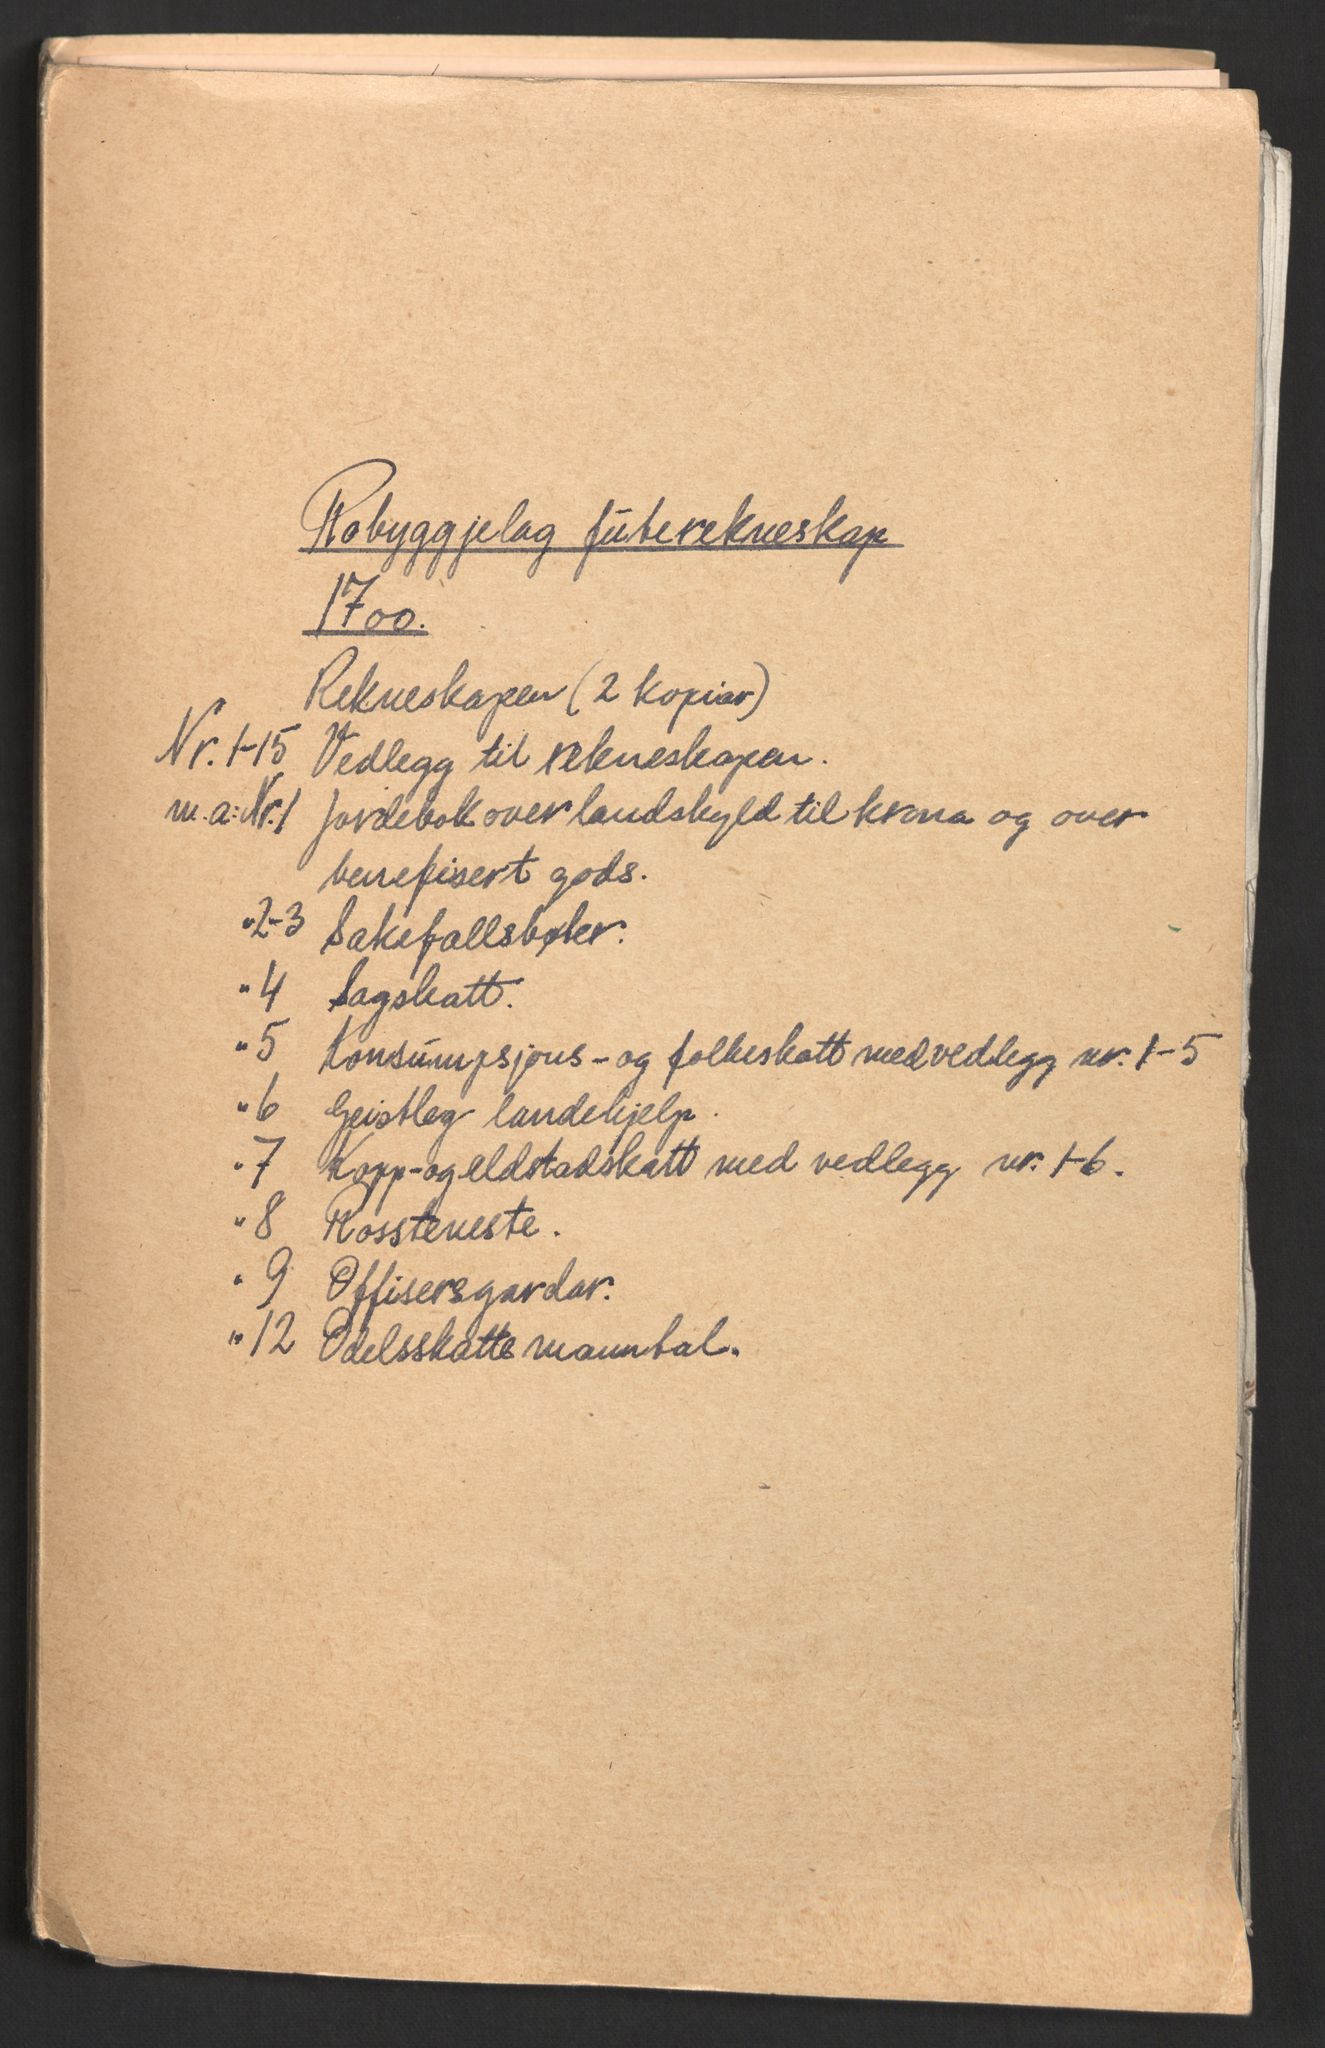 Robyggjelag futerekneskap
1700.
Rekneskapen (2 kopiar)
Nr. 1-15 Vedlegg til rekneskapen.
m.a: Nr. 1 Jordebok over landskyld til krona og over
benefisert gods.
" 2-3 Sakefallsbøter.
" 4 Sagskatt.
" 5 Konsumpsjons- og folkeskatt med vedlegg nr. 1-5
" 6 Geistleg landehjelp.
" 7 Kopp- og eldstadskatt med vedlegg nr. 1-6.
" 8 Rossteneste.
" 9 Offisersgardar.
" 12 Odelsskattemanntal.